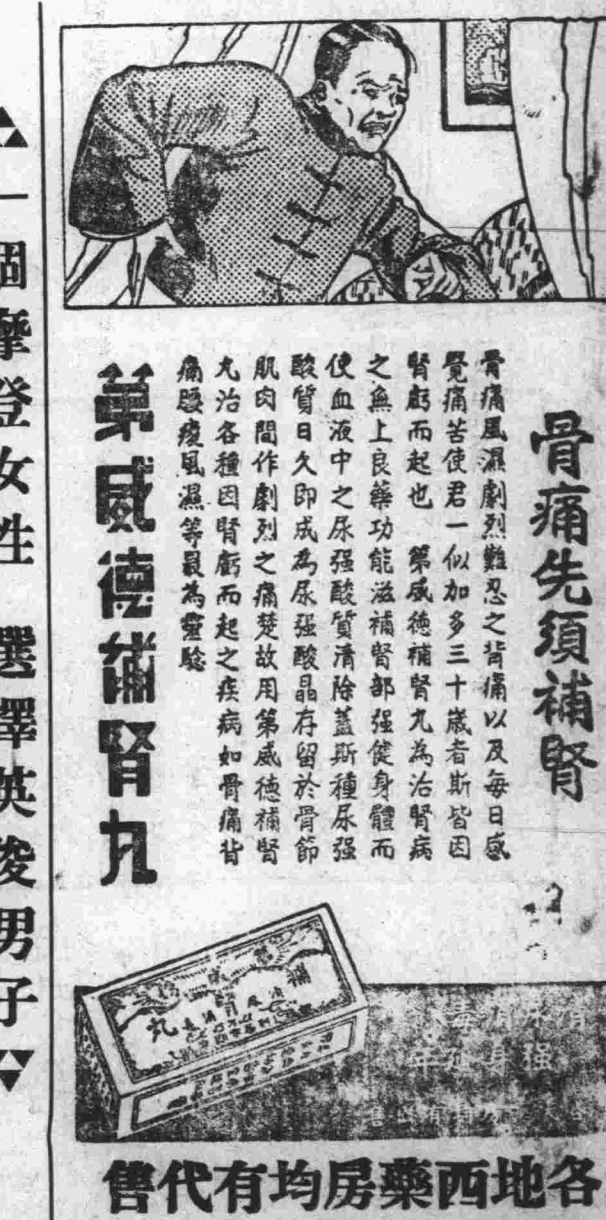 骨痛先須補腎
骨痛風濕劇烈難忍之背痛以及每日感
覺痛苦使君一似加多三十歲者斯皆因
腎虧而起也 第威德補腎丸為治腎病
之無上良藥功能滋補腎部强健身體而
使血液中之尿强酸質清除蓋斯種尿强
酸質日久即成為尿强酸晶存留於骨節
肌肉間作劇烈之痛楚故用第威德補腎
丸治各種因腎虧而起之疾病如骨痛背
痛腰痠風濕等最為靈驗
第威德補腎丸
各地西藥房均有代售
一個摩登女性 選擇英俊男子